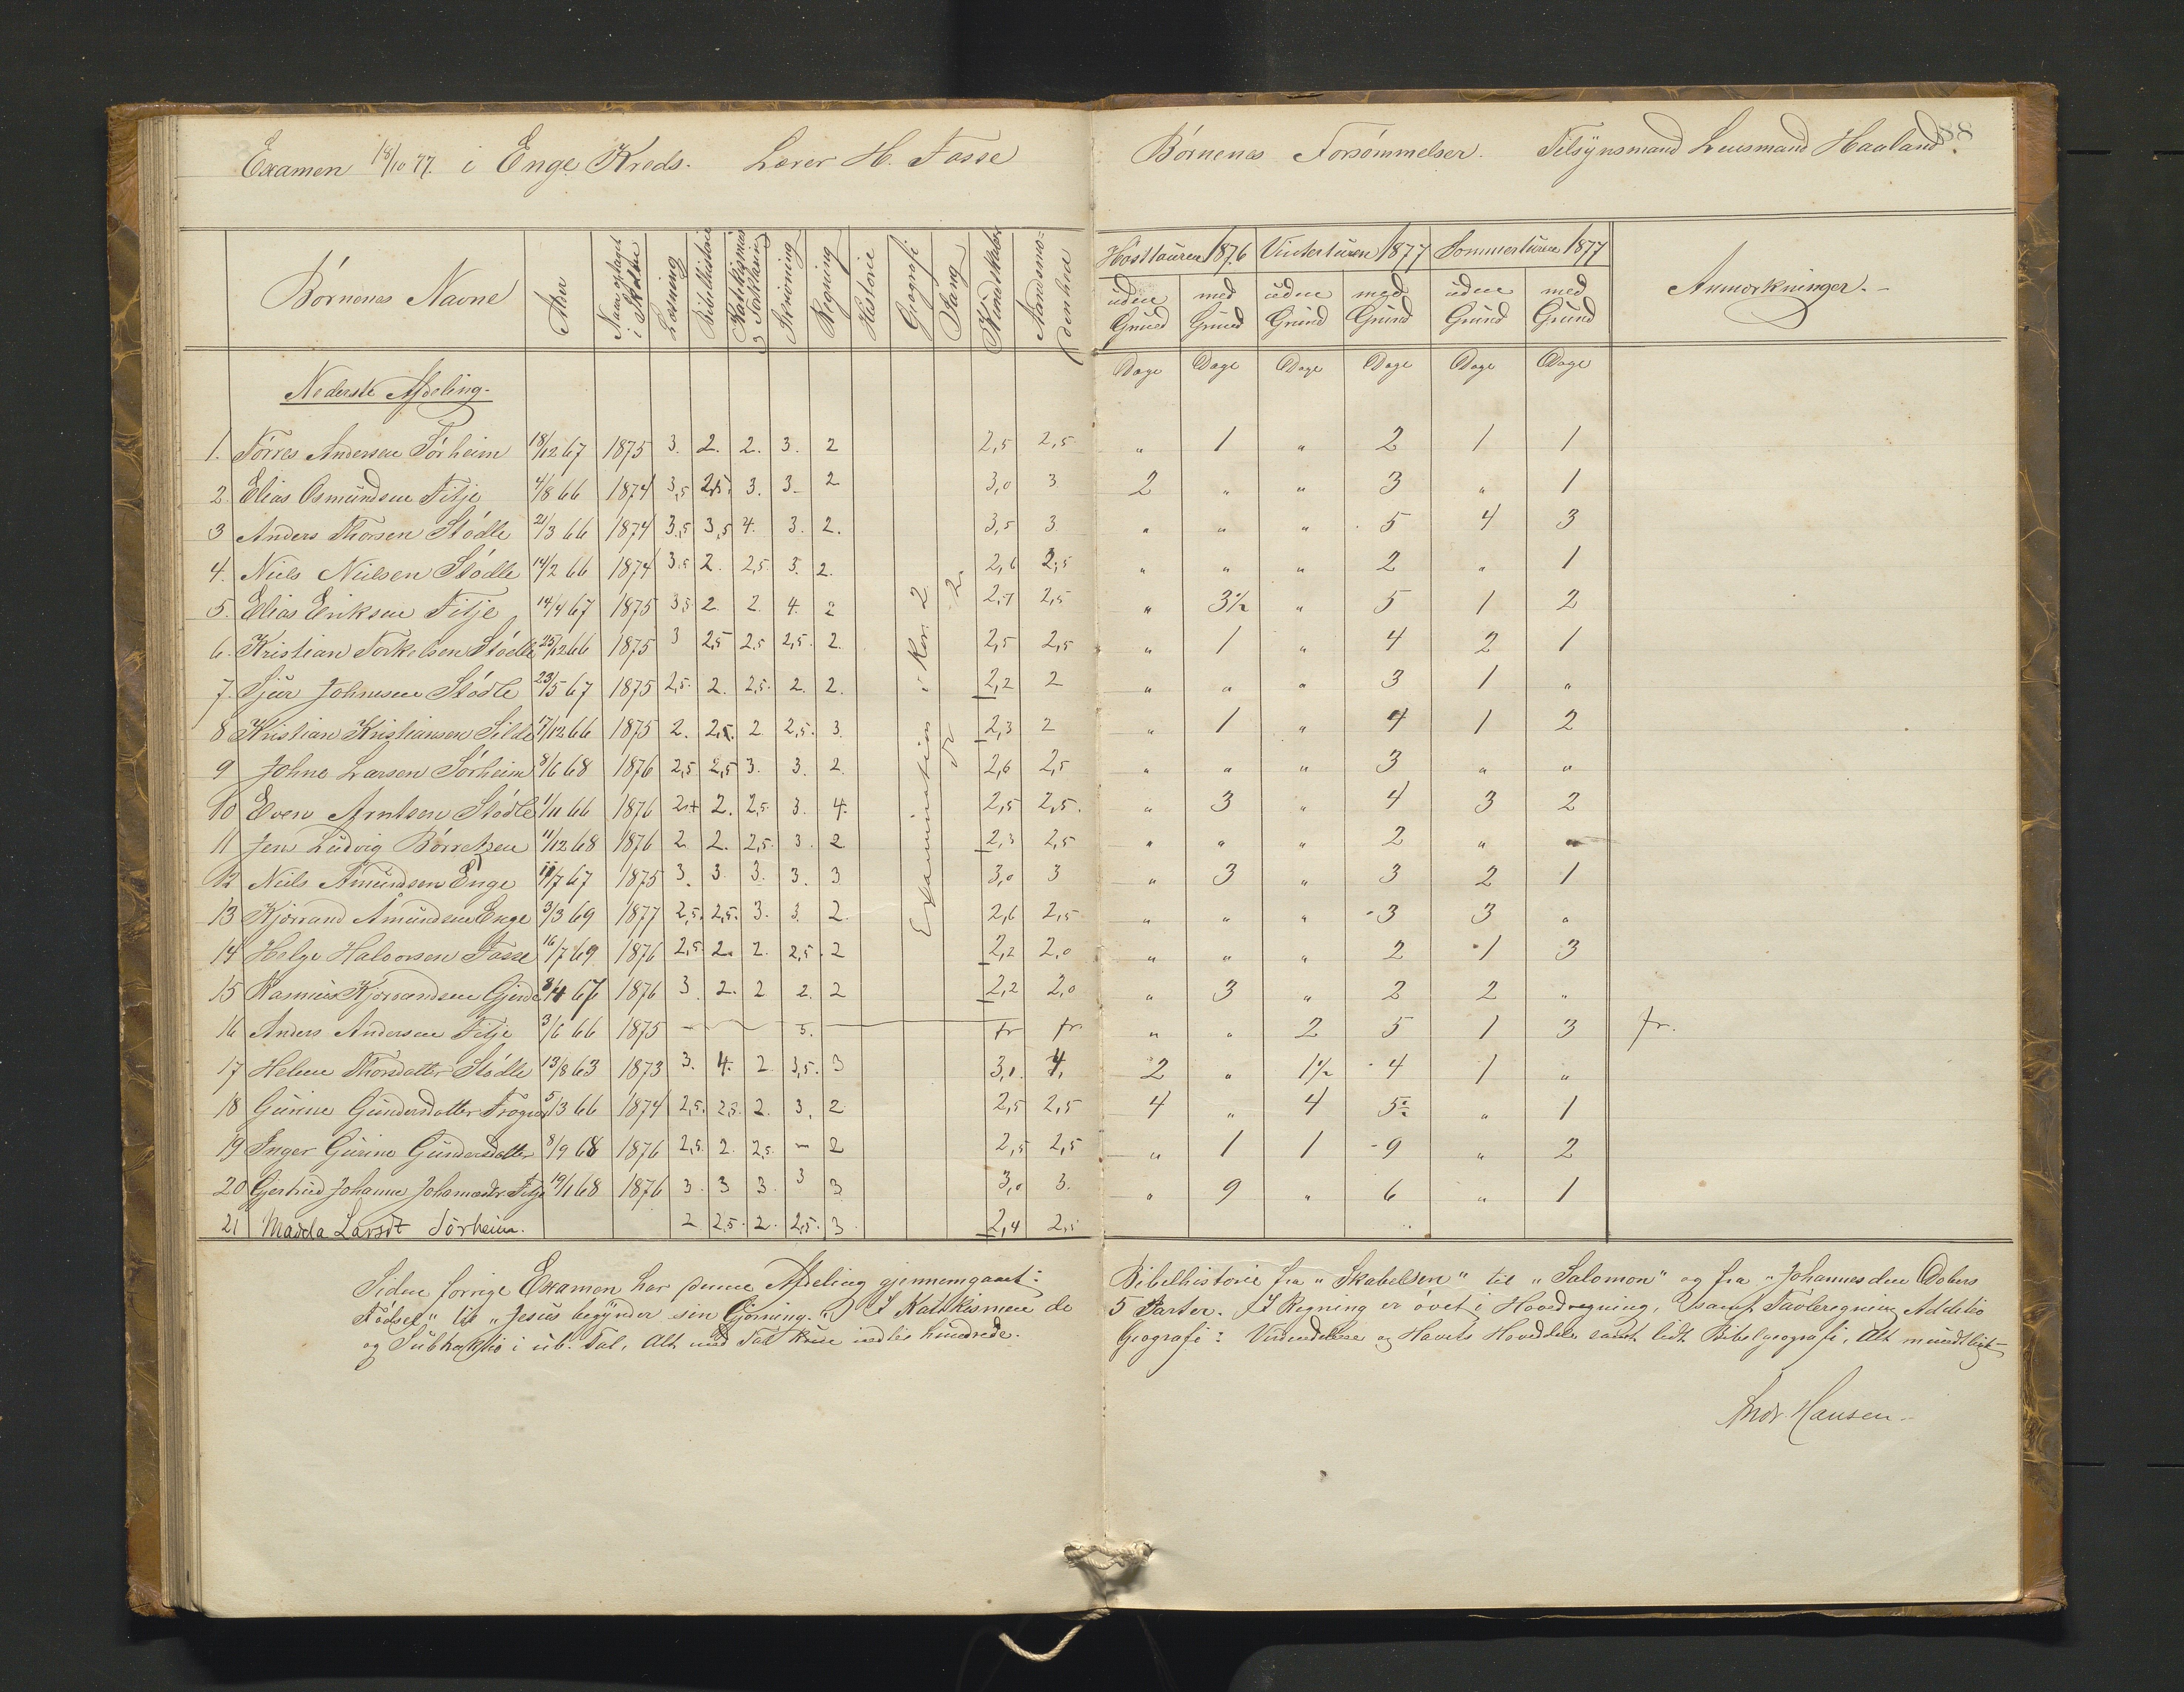 Examen 18/10 77. i Enge Kreds. Lærer H. Fasse
Børnenes Navne | Alder | Naar optaget i Skolen | Læsning | Bibelhistorie | Katekismus & Forklaring | Skrivning | Regning | Historie | Geografi | Sang | Kundskaber | Aandsmodenhed
Nederste Afdeling.
1. Tørres Andersen Sørheim 18/12 67 1875 3. 2. 2. 3. 2 2,5 2,5
2. Elias Osmundsen Fitje 4/8 66 1874 3,5 2,5. 3. 3- 2 3,0 3
3 Anders Thorsen Stødle 21/3 66 1874 3,5 3,5 4. 3. 2. 3,5 3
4. Niels Nielsen Stødle 14/2 66 1874 3,5 2. 2,5. 3. 2. 2,6 2,5
5. Elias Eriksen Fitje 14/4 67 1875 3,5 2. 2. 4. 2 2,7 2,5
6. Kristian Torkelsen Stødle 25/12 66 1875 3 2,5 2,5 2,5. 2. 2,5 2,5
7. Sjur Johnsen Stødle 23/5 67 1875 2,5. 2. 2,5. 2. 2. 2,2 2
8 Kristian Kristiansen Silde 17/12 66 1875 2. 2,5. 2 2,5. 3. 2,3 2
9 Johne Larsen Sørheim 8/6 68 1876 2,5 2,5 3. 3. 2. 2,6 2,5
10 Even Arntsen Stødle 1/11 66 1876 2+ 2. 2,5. 3. 4. 2,5 2,5.
11 Jen Ludvig Børretzen 11/12 68 1876 2. 2. 2,5. 3. 2 2,3 2,5
12 Neils Amundsen Enge 11/7 67 1875 3. 3. 3. 3. 3 3,0 3
13 Kjørrand Amundsen Enge 3/3 69 1877 2,5. 2,5. 3. 3. 2. 2,6 2,5
14 Helge Halvorsen Fasse 16/7 69 1876 2,5. 2. 2. 2,5. 2 2,2 2,0
15 Rasmus Kjørrandsen Gjerde 8/4 67 1876 3. 2. 2 2. 2 2,2 2,0
16 Anders Andersen Fitje 3/6 66 1875 — 3. — fr fr
17 Helene Thorsdatter Stødle 13/8 63 1873 3. 4. 2 3,5. 3 3,1. 4,
18 Gurine Gundersdatter 5/3 66 1874 2,5. 2,5. 2. 3. 2 2,5 2,5
19 Inger Gurine Gundersdatter 8/9 68 1876 2,5. 2. 2,5. – 2 2,5 2,5
20 Gjertrud Johanne Johnsdatr Fitje 19/1 68 1876 3. 3 3. 3 3 3,0 3.
21 Madla Larsdt Sørheim. 2 2,5. 2. 2,5. 3. 2,4 2,5
Examination i Kor. 2
do 2.
Siden forrige Examen har denne Afdeling gjennemgaaet:
Fødsel" til "Jesus begynder sin Gjerning." I Katekismen de
og Subtraktio i ub. Tal, Alt med Tal kun indtil hundrede.
Børnenes Forsømmelser. Tilsynsmand Lensmand Haaland. 88
Høstturen 1876 | Vinterturen 1877 | Sommerturen 1877 | Anmærkninger.
uden Grund | med Grund | uden Grund | med Grund | uden Grund | med Grund
Dage Dage Dage Dage Dage Dage
" 1 " 2 1 1
2 " " 3 " 1
" " " 5 4 3
" " " 2 " 1
" 3½ " 5 1 2
" 1 " 4 2 1
" " " 3 1 "
" 1 " 4 1 2
" " " 3 " "
" 3 " 4 3 2
" " " 2 " "
" 3 " 3 2 1
" " " 3 3 "
" " " 2 1 3
" 3 " 2 2 "
" " 2 5 1 3 fr.
2 " 1½ 4 1 "
4 " 4 5½ " 1
" 1 1 9 " 2
" 9 " 6 " 1
Bibelhistorie fra "Skabelsen" til "Salomon" og fra "Johannes den Døbers
5 Parter. I Regning er øvet i Hovedregning, samt Tavleregning Additio
Geografi: Verdensdelene og Havets Hoveddele samt lidt Bibelgeografi, Alt mundtligt
Andr Hansen